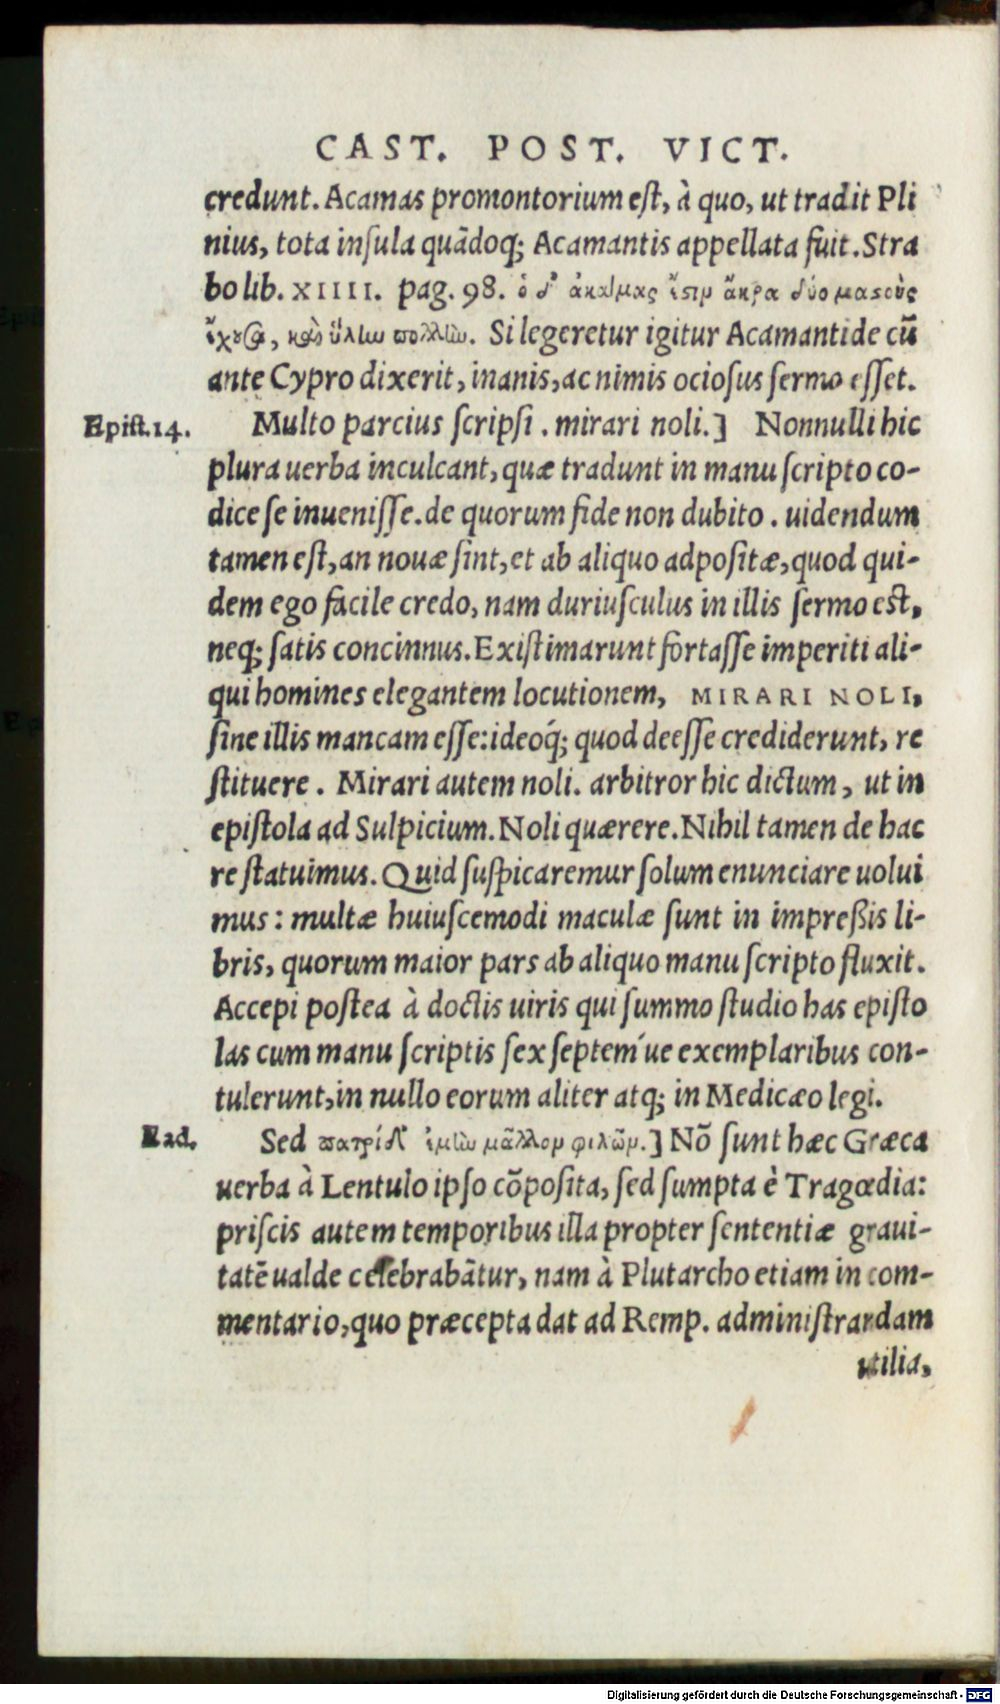 CAST. POST. VICT.
credunt. Acamas promontorium est, à quo, ut tradit Pli
nius, tota insula quādoq; Acamantis appellata fuit. Stra
bo lib. XIIII. pag. 98. ὁ δ' ἀκάμας ἔστιν ἄκρα δύο μαστοὺς
ἔχουσα, καὶ ὕλην πολλὴν. Si legeretur igitur Acamantide cū
ante Cypro dixerit, inanis, ac nimis ociosus sermo esset.
Epist.14. Multo parcius scripsi. mirari noli.] Nonnulli hic
plura uerba inculcant, quæ tradunt in manu scripto co-
dice se inuenisse. de quorum fide non dubito. uidendum
tamen est, an nouæ sint, et ab aliquo adpositæ, quod qui-
dem ego facile credo, nam duriusculus in illis sermo est,
neq; satis concinnus. Existimarunt fortasse imperiti ali-
qui homines elegantem locutionem, MIRARI NOLI,
sine illis mancam esse: ideoq́; quod deesse crediderunt, re
stituere. Mirari autem noli. arbitror hic dictum, ut in
epistola ad Sulpicium. Noli quærere. Nihil tamen de hac
re statuimus. Quid suspicaremur solum enunciare uolui
mus: multæ huiuscemodi maculæ sunt in impreßis li-
bris, quorum maior pars ab aliquo manu scripto fluxit.
Accepi postea à doctis uiris qui summo studio has episto
las cum manu scriptis sex septem'ue exemplaribus con-
tulerunt, in nullo eorum aliter atq; in Medicæo legi.
Ead. Sed πατρίδ' ἐμὴν μᾶλλον φιλῶν.] Nō sunt hæc Græca
uerba à Lentulo ipso cōposita, sed sumpta è Tragœdia:
priscis autem temporibus illa propter sententiæ graui-
tatē ualde celebrabātur, nam à Plutarcho etiam in com-
mentario, quo præcepta dat ad Remp. administrandam
utilia,
Digitalisierung gefördert durch die Deutsche Forschungsgemeinschaft - DFG